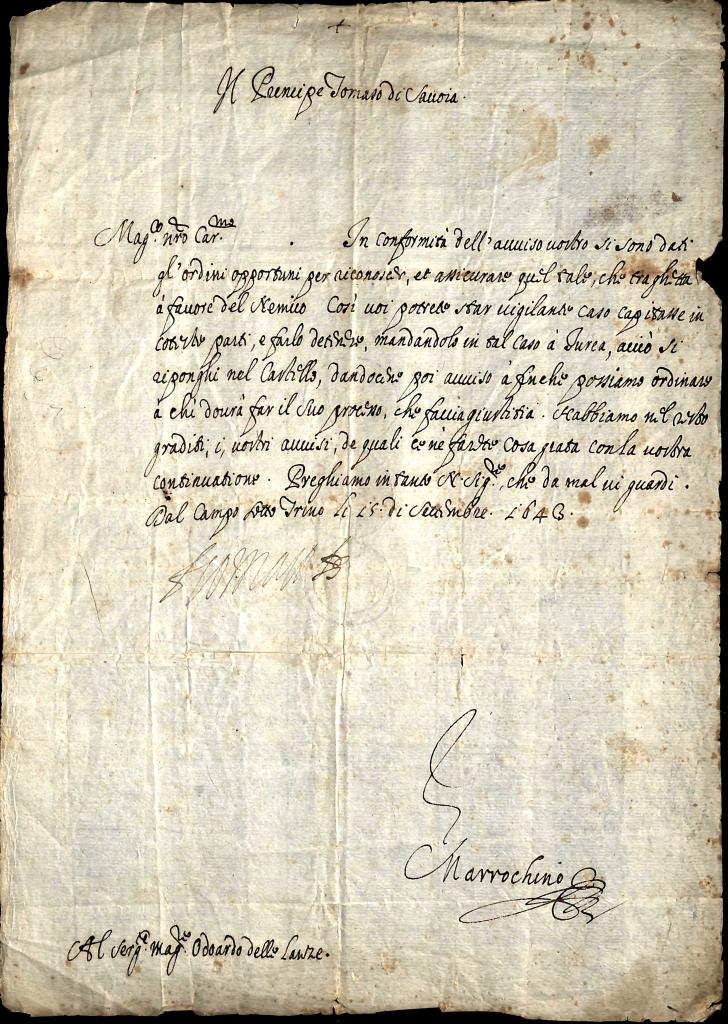 +
Il Prencipe Tomaso di Sauoia.
Mag.co nro Car.mo In conformità dell'auuiso uostro si sono dati
gl'ordini opportuni per riconoscer, et assicurare quel tale, che traghetta
à fauore del Nemico Così uoi potrete star uigilante caso capitasse in
coteste parti, e farlo detenere, mandandolo in tal caso à Iurea, acciò si
riponghi nel Castello, dandocene poi auuiso à finche possiamo ordinare
à chi dourà far il suo processo, che faccia giustitia. Habbiamo nel resto
graditi, i, uostri auuisi, de quali ce ne farete cosa grata con la uostra
continuatione. Preghiamo in tanto N. Sig.re, che da mal ui guardi.
Dal Campo sotto Trino li 15. di Settembre. 1643.
Tomaso
Marrochino
Al Serg.te mag.re Odoardo delle Lanze.